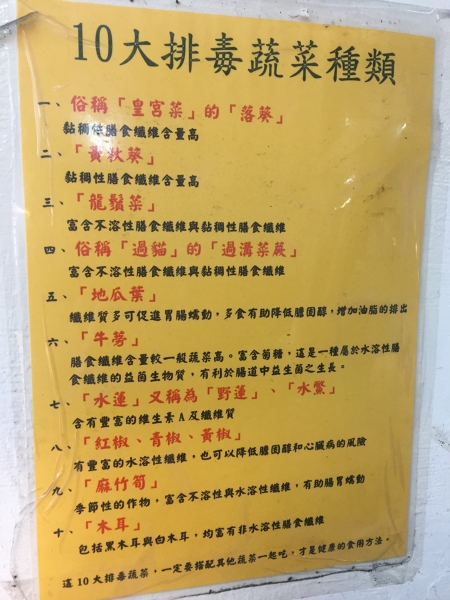 10大排毒蔬菜種類
一、俗稱「皇宮菜」的「落葵」
黏稠性膳食纖維含量高
二、「黃秋葵」
黏稠性膳食纖維含量高
三、「龍鬚菜」
富含不溶性膳食纖維與黏稠性膳食纖維
四、俗稱「過貓」的「過溝菜蕨」
富含不溶性膳食纖維與黏稠性膳食纖維
五、「地瓜葉」
纖維質多可促進胃腸蠕動，多食有助降低膽固醇，增加油脂的排出
六、「牛蒡」
膳食纖維含量較一般蔬菜高。富含菊糖，這是一種屬於水溶性膳
食纖維的益菌生物質，有利於腸道中益生菌之生長。
七、「水蓮」又稱為「野蓮」、「水鱉」
含有豐富的維生素A及纖維質
八、「紅椒、青椒、黃椒」
有豐富的水溶性纖維，也可以降低膽固醇和心臟病的風險
九、「麻竹筍」
季節性的作物，富含不溶性與水溶性纖維，有助腸胃蠕動
十、「木耳」
包括黑木耳與白木耳，均富有非水溶性膳食纖維
這10大排毒蔬菜，一定要搭配其他蔬菜一起吃，才是健康的食用方法。